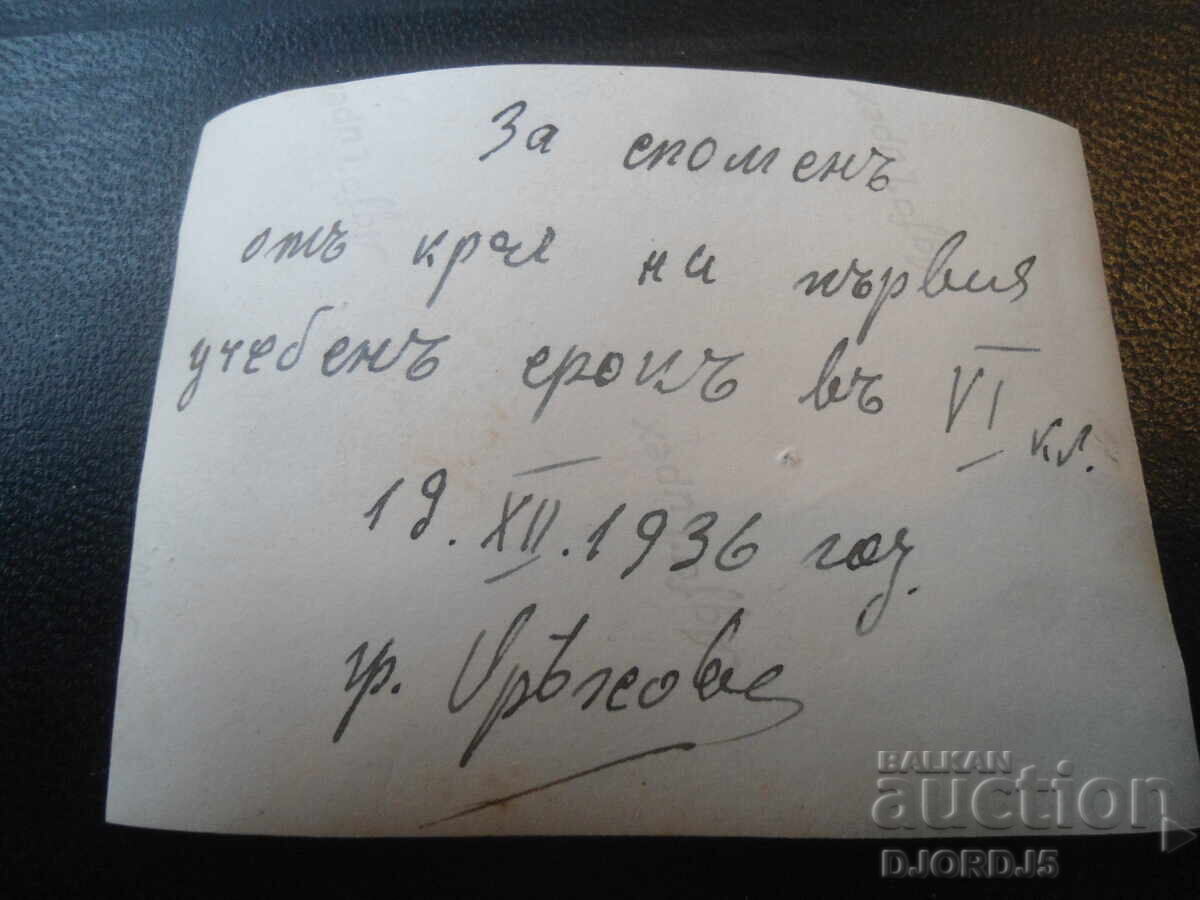 За споменъ
отъ края на първия
учебенъ срокъ въ VI кл.
19. XII. 1936 год.
гр. Орѣхово
BALKAN
auction
DJORDJ5